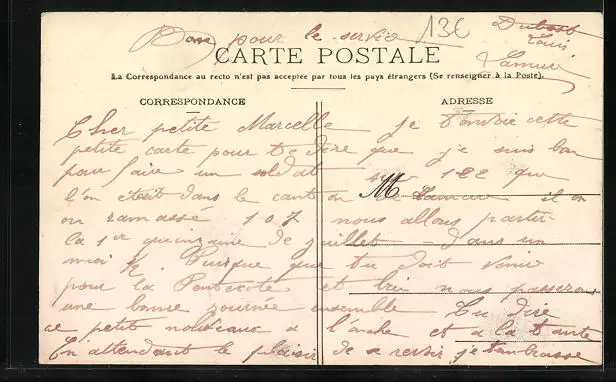 Bon pour le service 136 Dubost
Louis
CARTE POSTALE Lamure
La Correspondance au recto n'est pas acceptée par tous les pays étrangers (Se renseigner à la Poste).
CORRESPONDANCE ADRESSE
Cher petite Marcelle je t'envoie cette
petite carte pour te dire que je suis bon
pour faire un soldat sur 122 que
l'on était dans le canton M de Lamure il on
on ramassé 107 nous allons partir
la 1er quinzaine de juillet dans un
moi ½ Puisque que tu doit venir
pour la Pentecote et bien nous passerons
une bonne journée ensemble Tu dira
ce petit nouveaux a l'oncle et a la tante
En attendant le plaisir de se revoir je t'embrasse